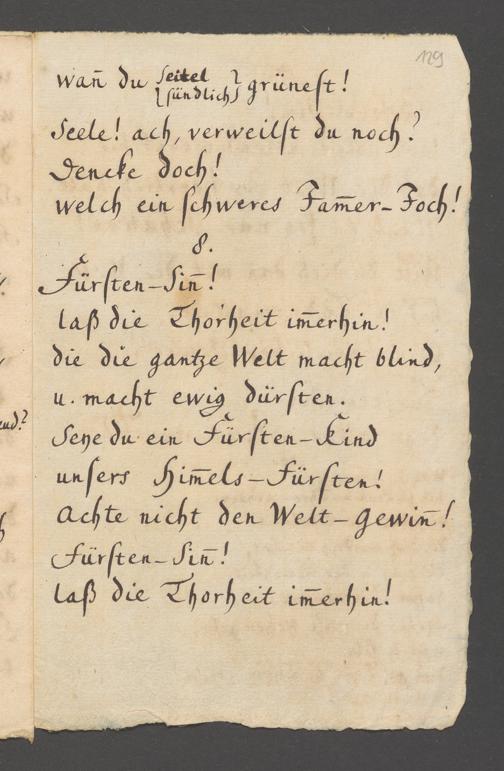 129
wan̄ du {eitel / sündlich} grünest!
Seele! ach, verweilst du noch?
Dencke doch!
welch ein schweres Jam̄er-Joch!
8.
Fürsten-Sin̄!
laß die Thorheit im̄erhin!
die die gantze Welt macht blind,
u. macht ewig dürsten.
Seye du ein Fürsten-Kind
unsers Him̄els-Fürsten!
Achte nicht den Welt-Gewin̄!
Fürsten-Sin̄!
laß die Thorheit im̄erhin!